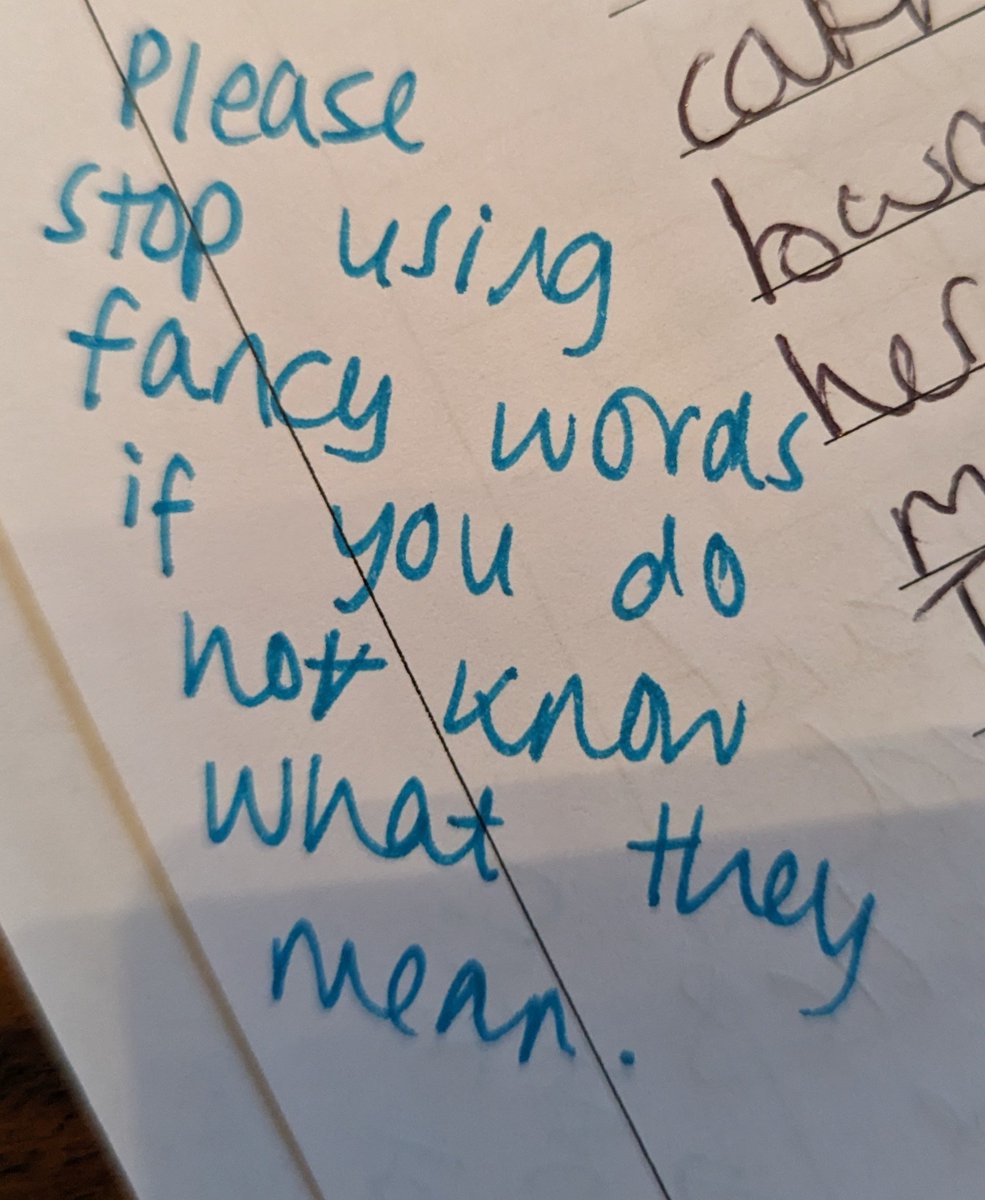 Please
stop using
fancy words
if you do
not know
what they
mean.
her